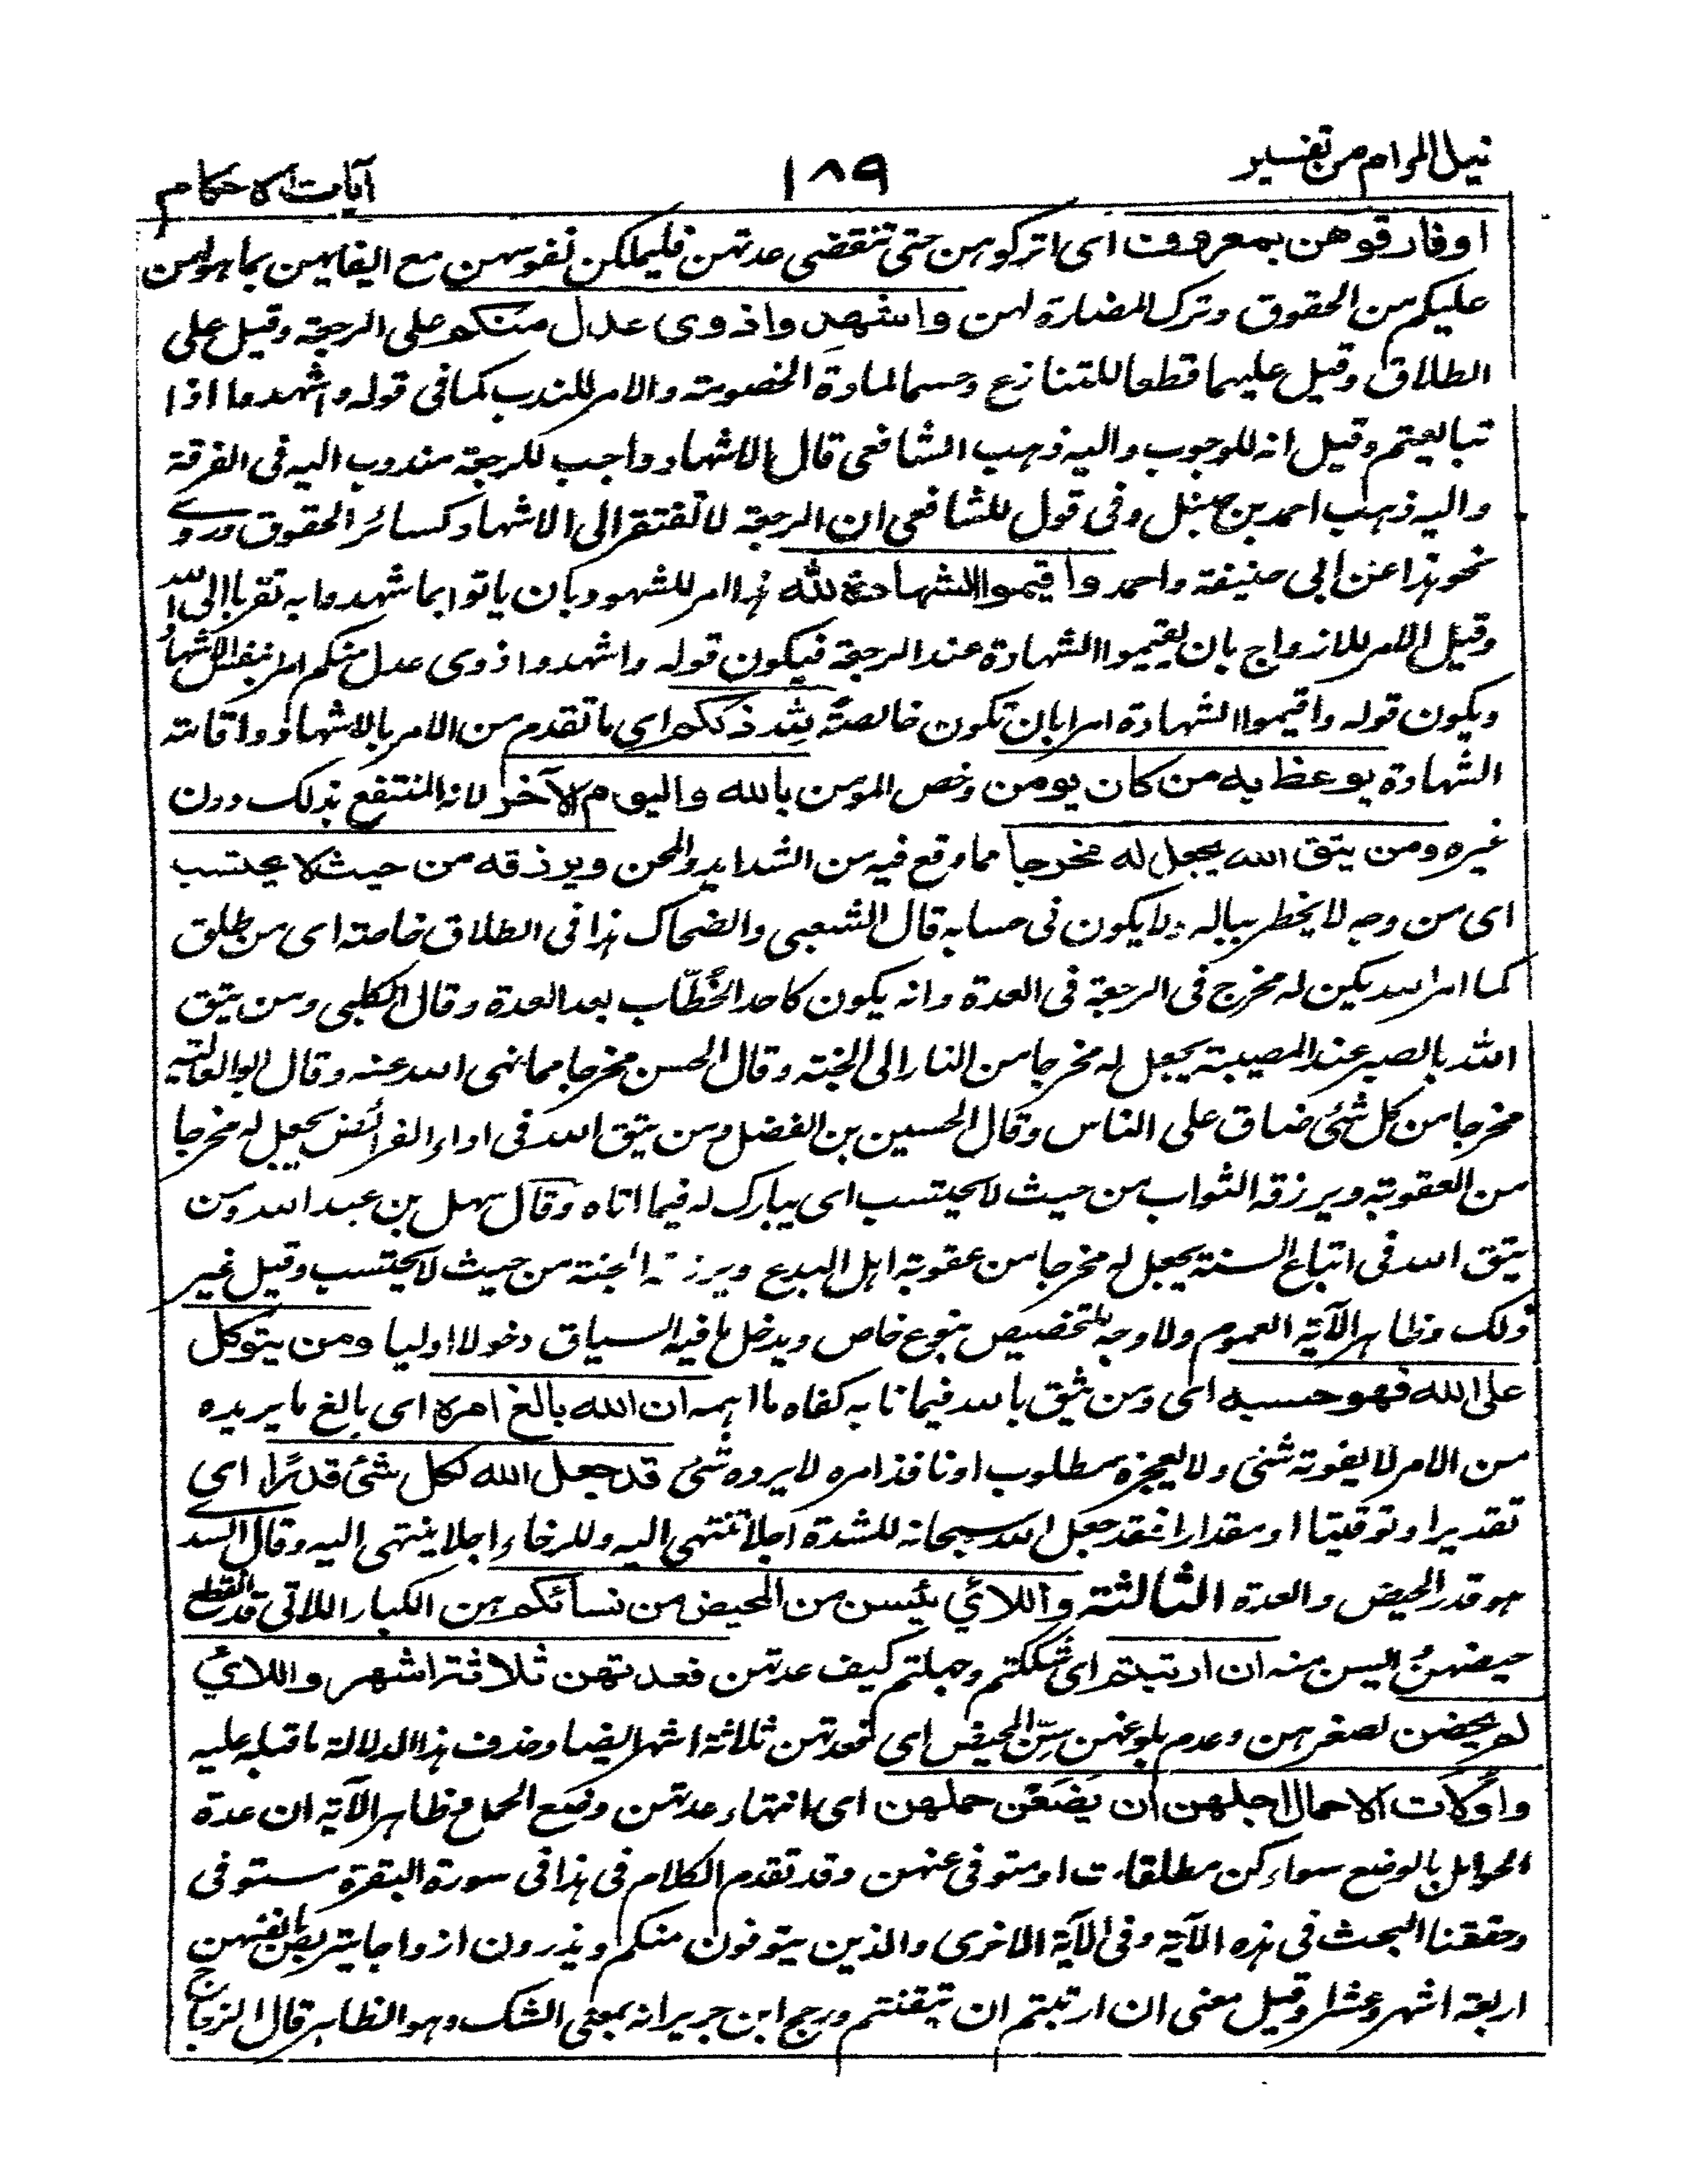 نيل المرام من تفسير ١٨٩ آيات الاحكام
اوفارقوهن بمعروف اى اتركوهن حتى تنقضى عدتهن فليملكن نفوسهن مع ايفائهن بما هو لهن
عليكم من الحقوق وترك المضارة لهن واشهدوا ذوى عدل منكم على الرجعة وقيل على
الطلاق وقيل عليهما قطعا للتنازع وحسما لمادة الخصومة والامر للندب كما فى قوله واشهدوا اذا
تبايعتم وقيل انه للوجوب واليه ذهب الشافعى قال الاشهاد واجب للرجعة مندوب اليه فى الفرقة
واليه ذهب احمد بن حنبل وفى قول للشافعى ان الرجعة لا تفتقر الى الاشهاد كسائر الحقوق وروى
نحو هذا عن ابى حنيفة واحمد واقيموا الشهادة لله هذا امر للشهود بان ياتوا بما شهدوا به تقربا الى الله
وقيل الامر للازواج بان يقيموا الشهادة عند الرجعة فيكون قوله واشهدوا ذوى عدل منكم امر بنفس الاشهاد
ويكون قوله واقيموا الشهادة امرا بان تكون خالصة لله ذلكم اى ما تقدم من الامر بالاشهاد واقامة
الشهادة يوعظ به من كان يومن وخص المؤمن بالله واليوم الآخر لانه المنتفع بذلك دون
غيره ومن يتق الله يجعل له مخرجا مما وقع فيه من الشدايد والمحن ويرزقه من حيث لا يحتسب
اى من وجه لا يخطر بباله ولا يكون فى حسابه قال الشعبى والضحاك هذا فى الطلاق خاصة اى من طلق
كما امر الله يكن له مخرج فى الرجعة فى العدة وانه يكون كاحد الخُطّاب بعد العدة وقال الكلبى ومن يتق
الله بالصبر عند المصيبة يجعل له مخرجا من النار الى الجنة وقال الحسن مخرجا مما نهى الله عنه وقال ابو العالية
مخرجا من كل شئ ضاق على الناس وقال الحسين بن الفضل ومن يتق الله فى اداء الفرائض يجعل له مخرجا
من العقوبة ويرزقه الثواب من حيث لا يحتسب اى يبارك له فيما اتاه وقال سهل بن عبد الله ومن
يتق الله فى اتباع السنة يجعل له مخرجا من عقوبة اهل البدع ويرزقه الجنة من حيث لا يحتسب وقيل غير
ذلك وظاهر الآية العموم ولا وجه للتخصيص بنوع خاص ويدخل ما فيه السياق دخولا اوليا ومن يتوكل
على الله فهو حسبه اى ومن يثق بالله فيما نابه كفاه ما اهمه ان الله بالغ امره اى بالغ ما يريده
من الامر لا يفوته شئ ولا يعجزه مطلوب او نافذ امره لا يرده شئ قد جعل الله لكل شئ قدرًا اى
تقديرا وتوقيتا او مقدارا فقد جعل الله سبحانه للشدة اجلا تنتهى اليه وللرخاء اجلا ينتهى اليه وقال السدى
هو قدر الحيض والعدة الثالثة واللائي يئسن من المحيض من نسائكم هن الكبار اللاتى قد انقطع
حيضهن ايسن منه ان ارتبتم اى شككتم وجهلتم كيف عدتهن فعدتهن ثلاثة اشهر واللائي
لم يحضن لصغرهن وعدم بلوغهن سِنّ المحيض اى فعدتهن ثلاثة اشهر ايضا وحذف هذا لدلالة ما قبله عليه
واُولات الاحمال اجلهن ان يضَعْن حملهن اى انتهاء عدتهن وضع الحمل وظاهر الآية ان عدة
الحوامل بالوضع سواء كن مطلقات او متوفى عنهن وقد تقدم الكلام فى هذا فى سورة البقرة مستوفى
وحققنا البحث فى هذه الآية وفى الآية الاخرى والذين يتوفون منكم ويذرون ازواجا يتربصن بانفسهن
اربعة اشهر وعشرا وقيل معنى ان ارتبتم ان تيقنتم ورجح ابن جرير انه بمعنى الشك وهو الظاهر قال الزجاج